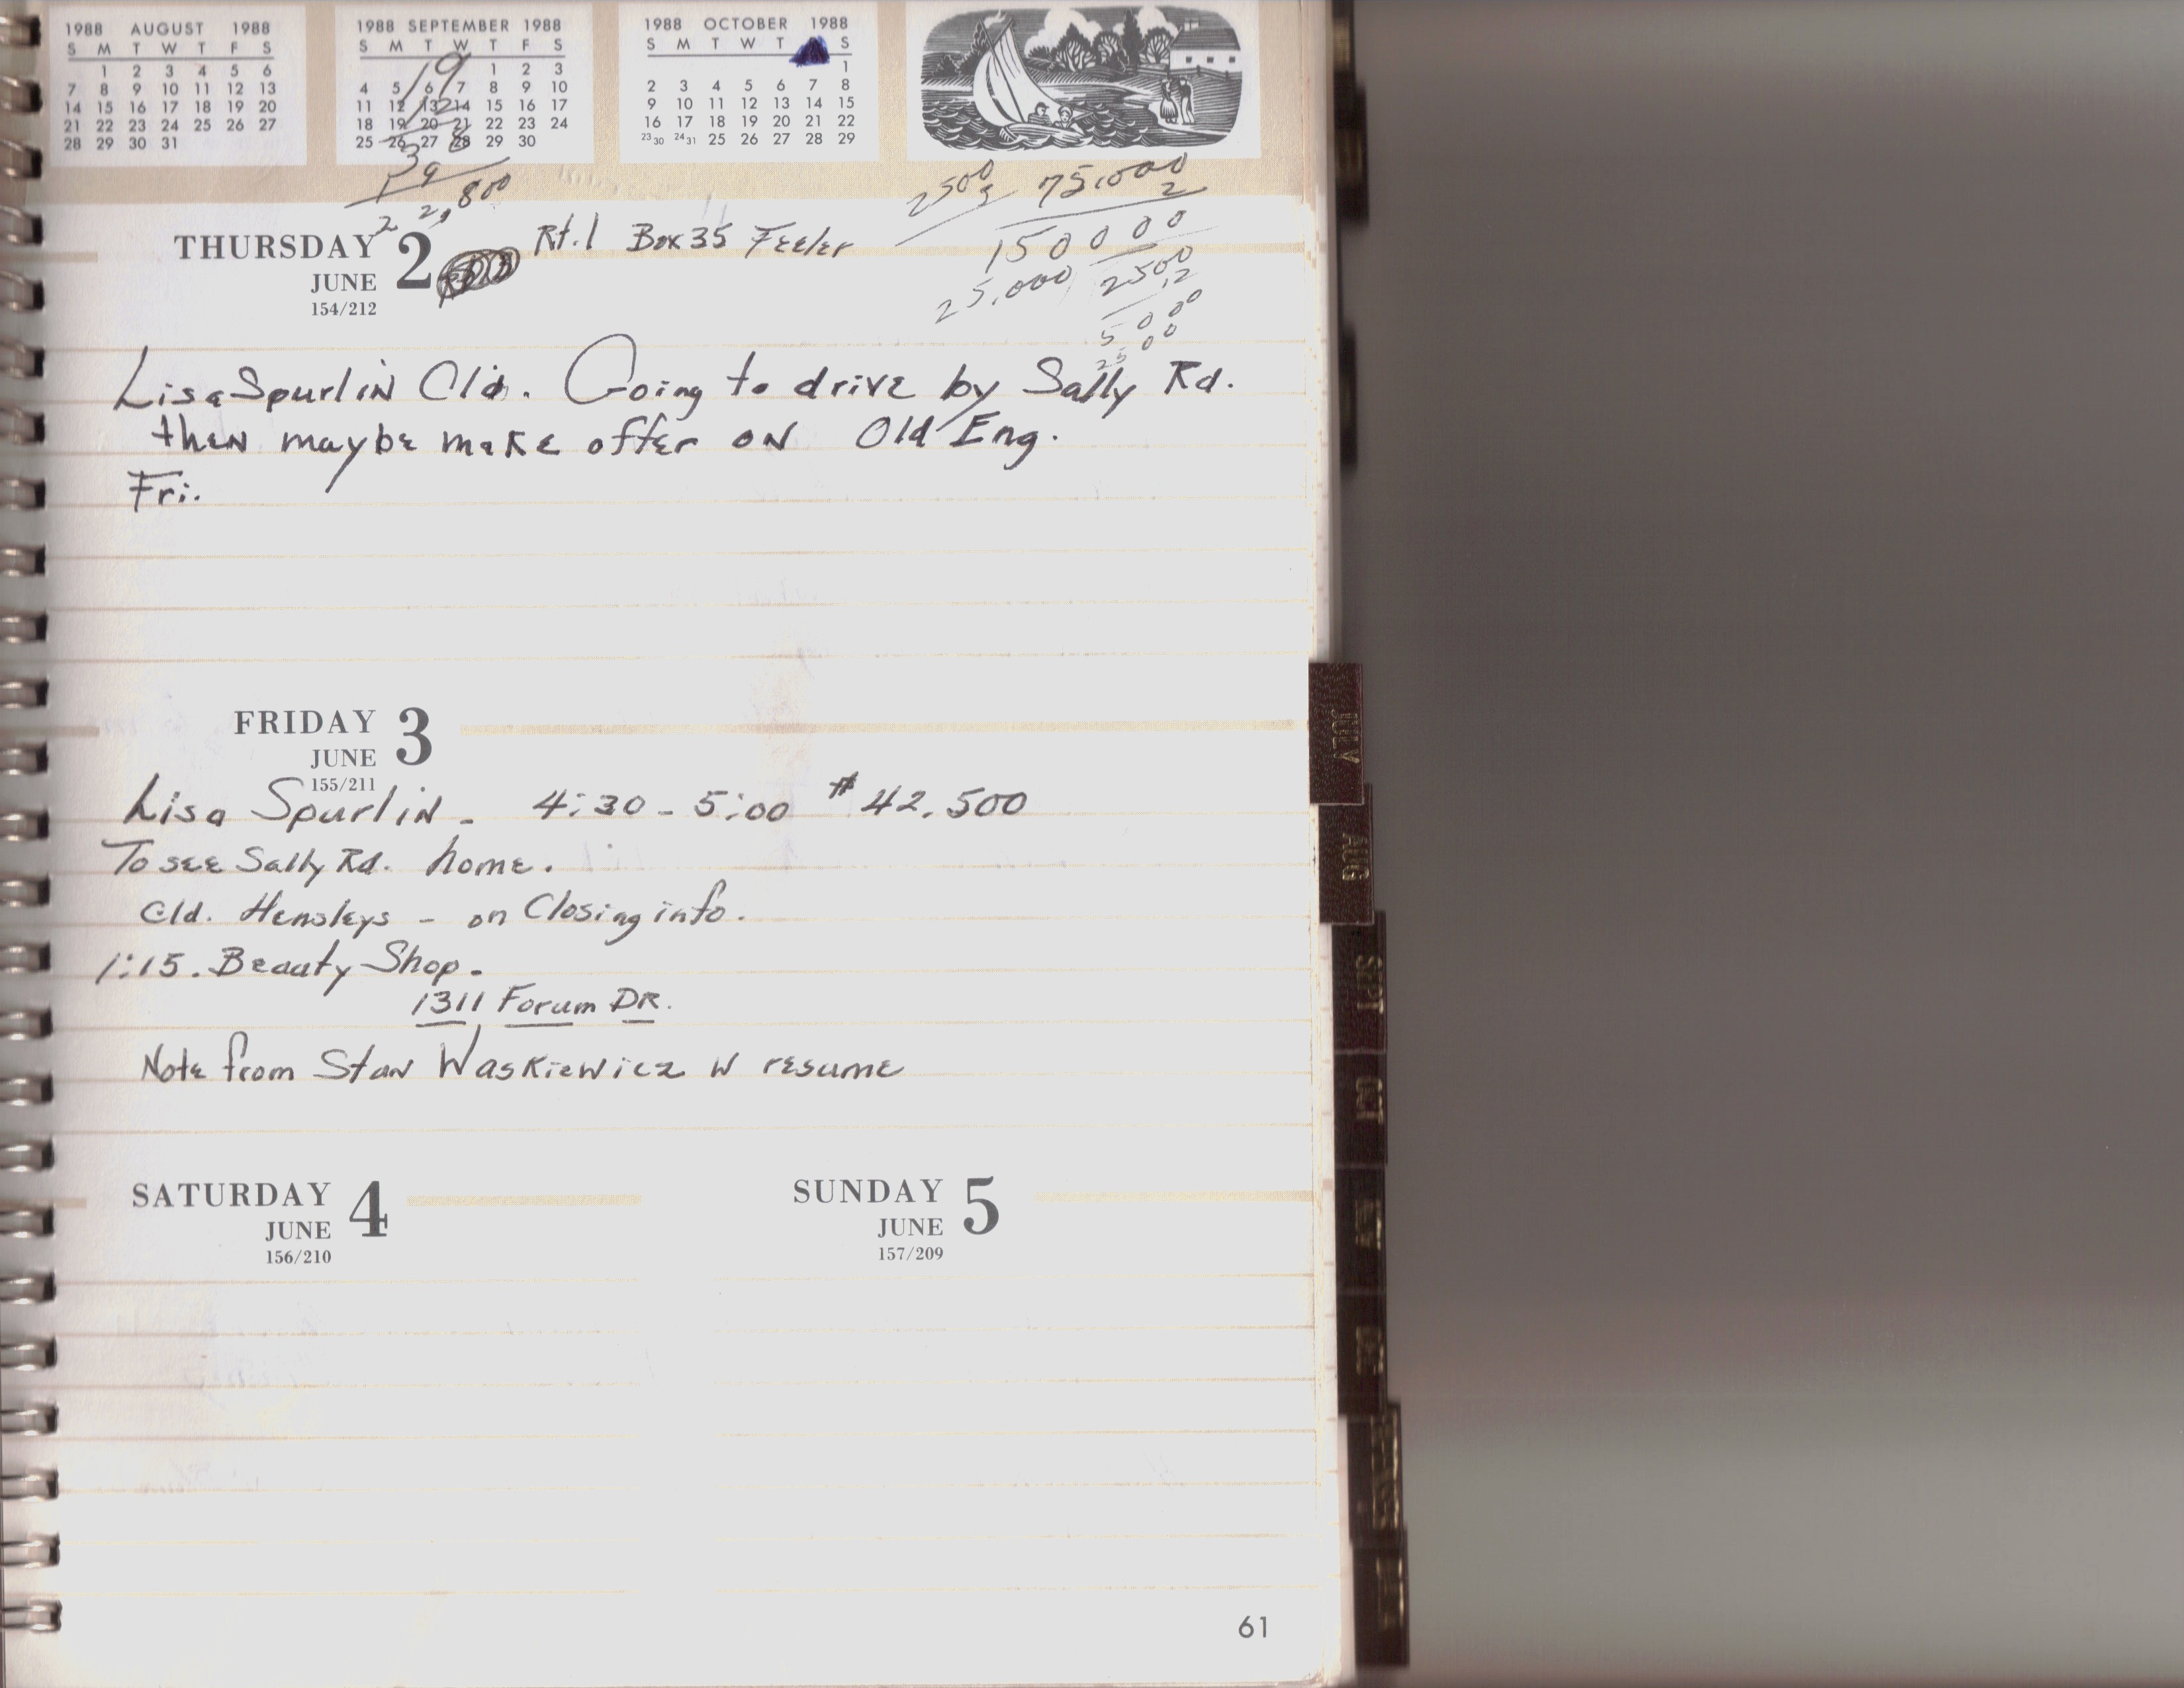 1988 AUGUST 1988
S M T W T F S
1 2 3 4 5 6
7 8 9 10 11 12 13
14 15 16 17 18 19 20
21 22 23 24 25 26 27
28 29 30 31
1988 SEPTEMBER 1988
S M T W T F S
1 2 3
4 5 6 7 8 9 10
11 12 13 14 15 16 17
18 19 20 21 22 23 24
25 26 27 28 29 30
1988 OCTOBER 1988
S M T W T S
1
2 3 4 5 6 7 8
9 10 11 12 13 14 15
16 17 18 19 20 21 22
23 30 24 31 25 26 27 28 29
19
12
38
19
22,800
2500
3
75,000
2
150000
25,000
2500
.2
5000
2500
THURSDAY 2
JUNE
154/212
Rt. 1 Box 35 Feeler
Lisa Spurlin Cld. Going to drive by Sally Rd.
then maybe make offer on Old Eng.
Fri.
FRIDAY 3
JUNE
155/211
Lisa Spurlin - 4:30 - 5:00 # 42,500
To see Sally Rd. home.
Cld. Hensleys - on Closing info.
1:15. Beauty Shop.
1311 Forum DR.
Note from Stan Waskiewicz w resume
SATURDAY 4
JUNE
156/210
SUNDAY 5
JUNE
157/209
61
JULY
AUG
SEPT
OCT